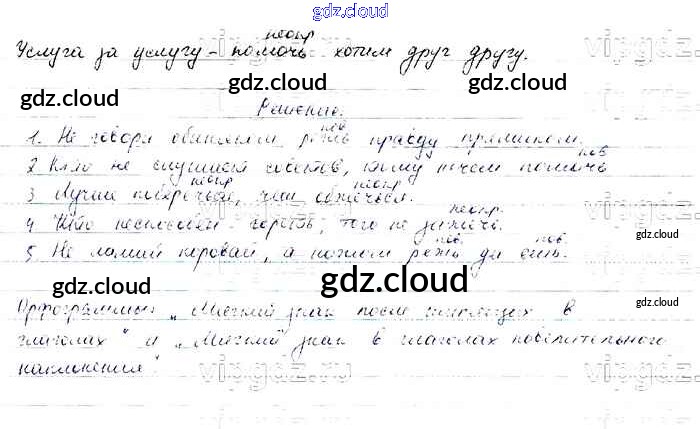 gdz.cloud
неопр
Услуга за услугу - помочь хотим друг другу.
gdz.cloud gdz.cloud gdz.cloud
Решение.
пов
1. Не говори обиняком, режь правду прямиком.
пов
2 Кто не слушает советов, тому нечем помочь
неопр неопр
3 Лучше поберечься, чем обжечься.
неопр
4 Кто неспособен гореть, того не зажечь.
пов пов
5 Не ломай каравай, а ножом режь да ешь.
gdz.cloud gdz.cloud gdz.cloud
Орфограммы „Мягкий знак после шипящих в
глаголах" и „Мягкий знак в глаголах повелительного
наклонения"
gdz.cloud gdz.cloud